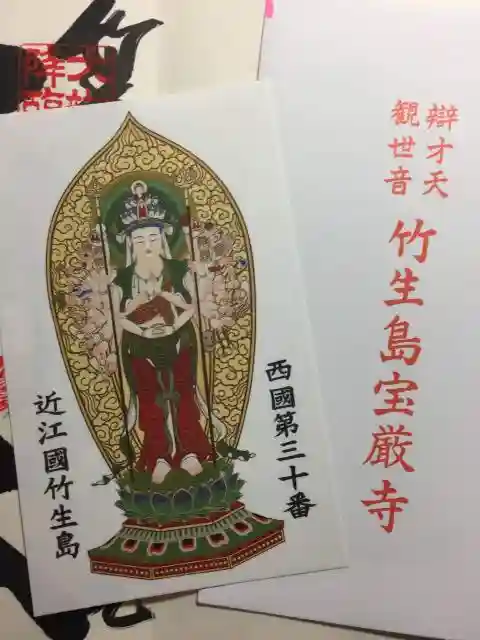 辯才天
観世音
竹生島宝厳寺
西國第三十番
近江國竹生島
竹